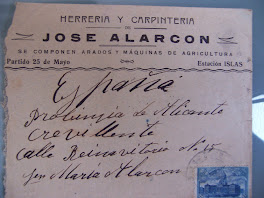 HERRERIA Y CARPINTERIA
DE
JOSE ALARCON
SE COMPONEN ARADOS Y MÁQUINAS DE AGRICULTURA
Partido 25 de Mayo Estación ISLAS
España
Provincia de Alicante
Crevillente
Calle
Maria Alarcon